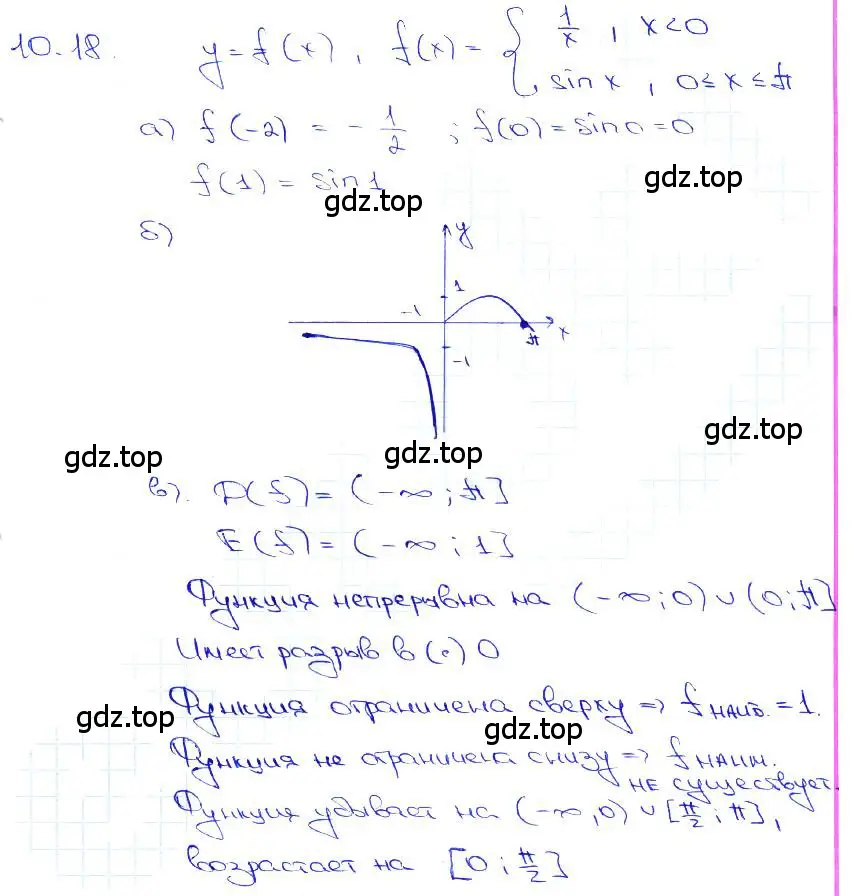 10.18. y=f(x), f(x)= { 1/x, x<0
sin x, 0≤x≤π
а) f(-2) = -1/2 ; f(0)=sin0=0
f(1) = sin1
gdz.top
gdz.top
б)
y
1
-1
x
π
-1
gdz.top
gdz.top
gdz.top
в). D(f)=(-∞;π]
E(f)=(-∞;1]
Функция непрерывна на (-∞;0)∪(0;π]
Имеет разрыв в (•) 0
Функция ограничена сверху => fнаиб.=1.
gdz.top
gdz.top
Функция не ограничена снизу => fнаим.
не существует.
Функция убывает на (-∞,0)∪[π/2;π],
возрастает на [0;π/2]